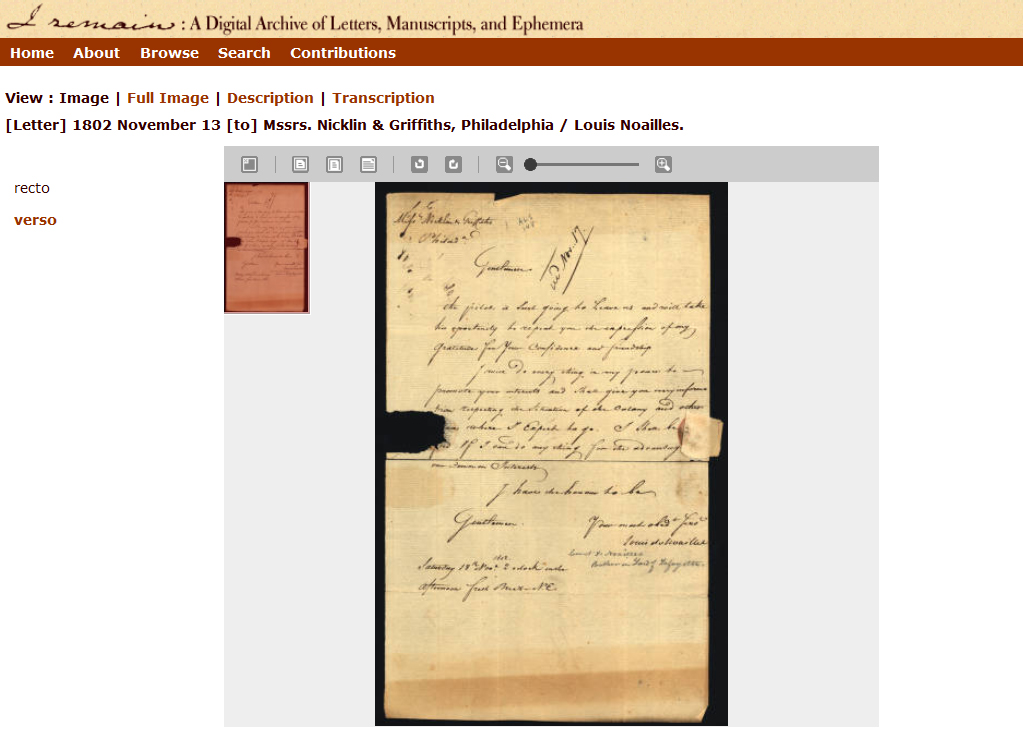 I remain : A Digital Archive of Letters, Manuscripts, and Ephemera
Home About Browse Search Contributions
View : Image | Full Image | Description | Transcription
[Letter] 1802 November 13 [to] Mssrs. Nicklin & Griffiths, Philadelphia / Louis Noailles.
recto
verso
Messrs Nicklin & Griffiths
Philada
Gentlemen
Nov. 17
the pilot is Just going to Leave us and will take
his oportunity to repeat you the expression of my
Gratitude for Your Confidence and friendship
I will Do every thing in my power to
promote your interests and shall give you every informa
tion respecting the Situation of the Colony and other
where I Expect to go. I Shall be
If I can do any thing for the advantage
our Common Interests
I have the honour to be
Gentlemen
Your most obedt Servt
Louis de Noailles
Saturday 13th Novr 2 o'clock in the
1802
afternoon fresh Breeze N.E.